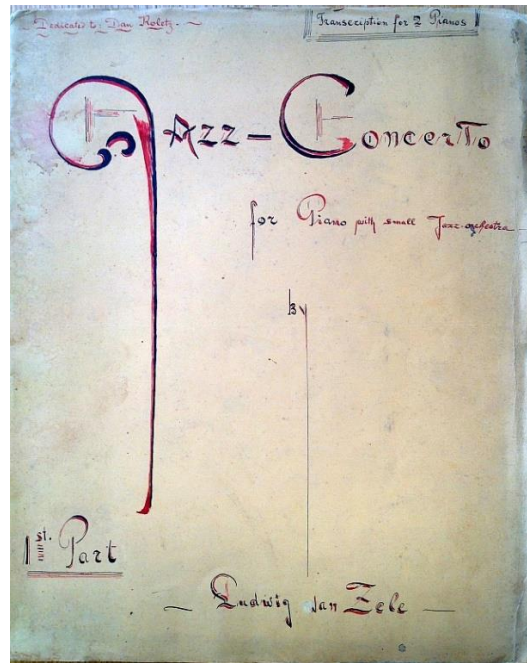 Dedicated to: Dan Koletz. -
Transcription for 2 Pianos
Jazz-Concerto
for Piano with small Jazz-orchestra
By
1st. Part
- Ludwig van Zele -